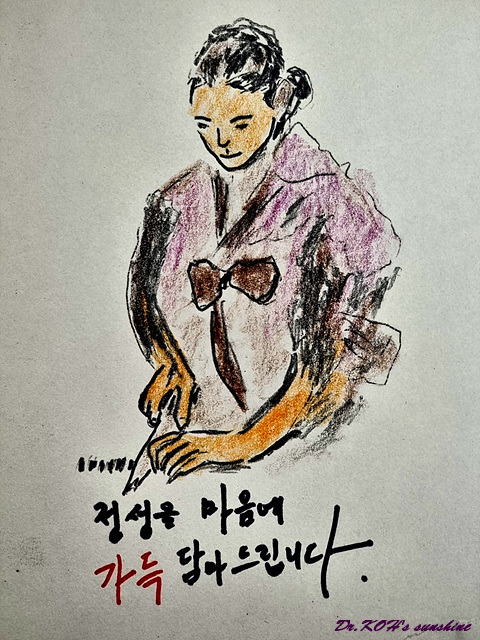 정성을 마음에
가득 담아 드립니다.
Dr.KOH's sunshine